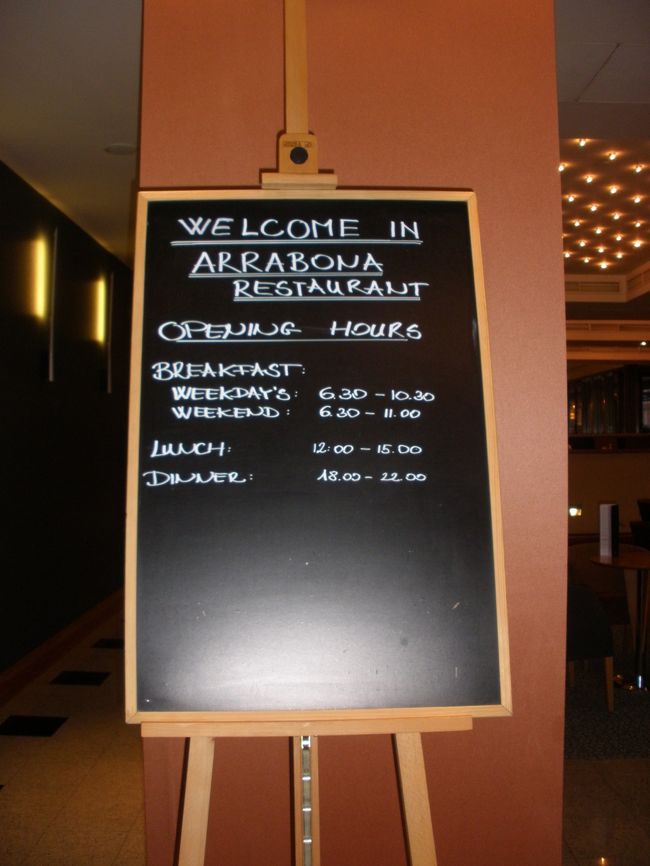 WELCOME IN
ARRABONA
RESTAURANT
OPENING HOURS
BREAKFAST:
WEEKDAY'S: 6.30 - 10.30
WEEKEND: 6.30 - 11.00
LUNCH: 12:00 - 15.00
DINNER: 18.00 - 22.00